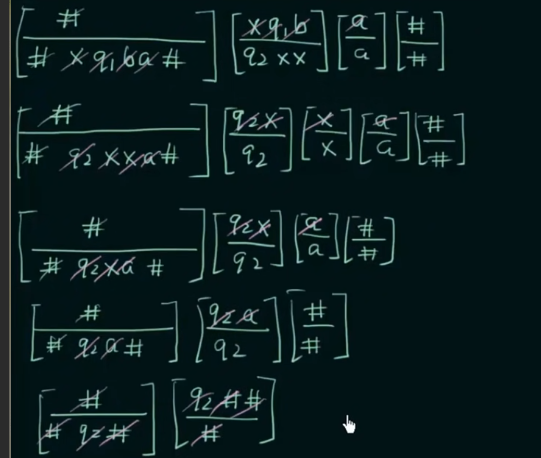 [#/# x q₁ b a #] [x q₁ b/q₂ x x] [a/a] [#/#]
[#/# q₂ x x a #] [q₂ x/q₂] [x/x] [a/a] [#/#]
[#/# q₂ x a #] [q₂ x/q₂] [a/a] [#/#]
[#/# q₂ a #] [q₂ a/q₂] [#/#]
[#/# q₂ #] [q₂ # #/#]